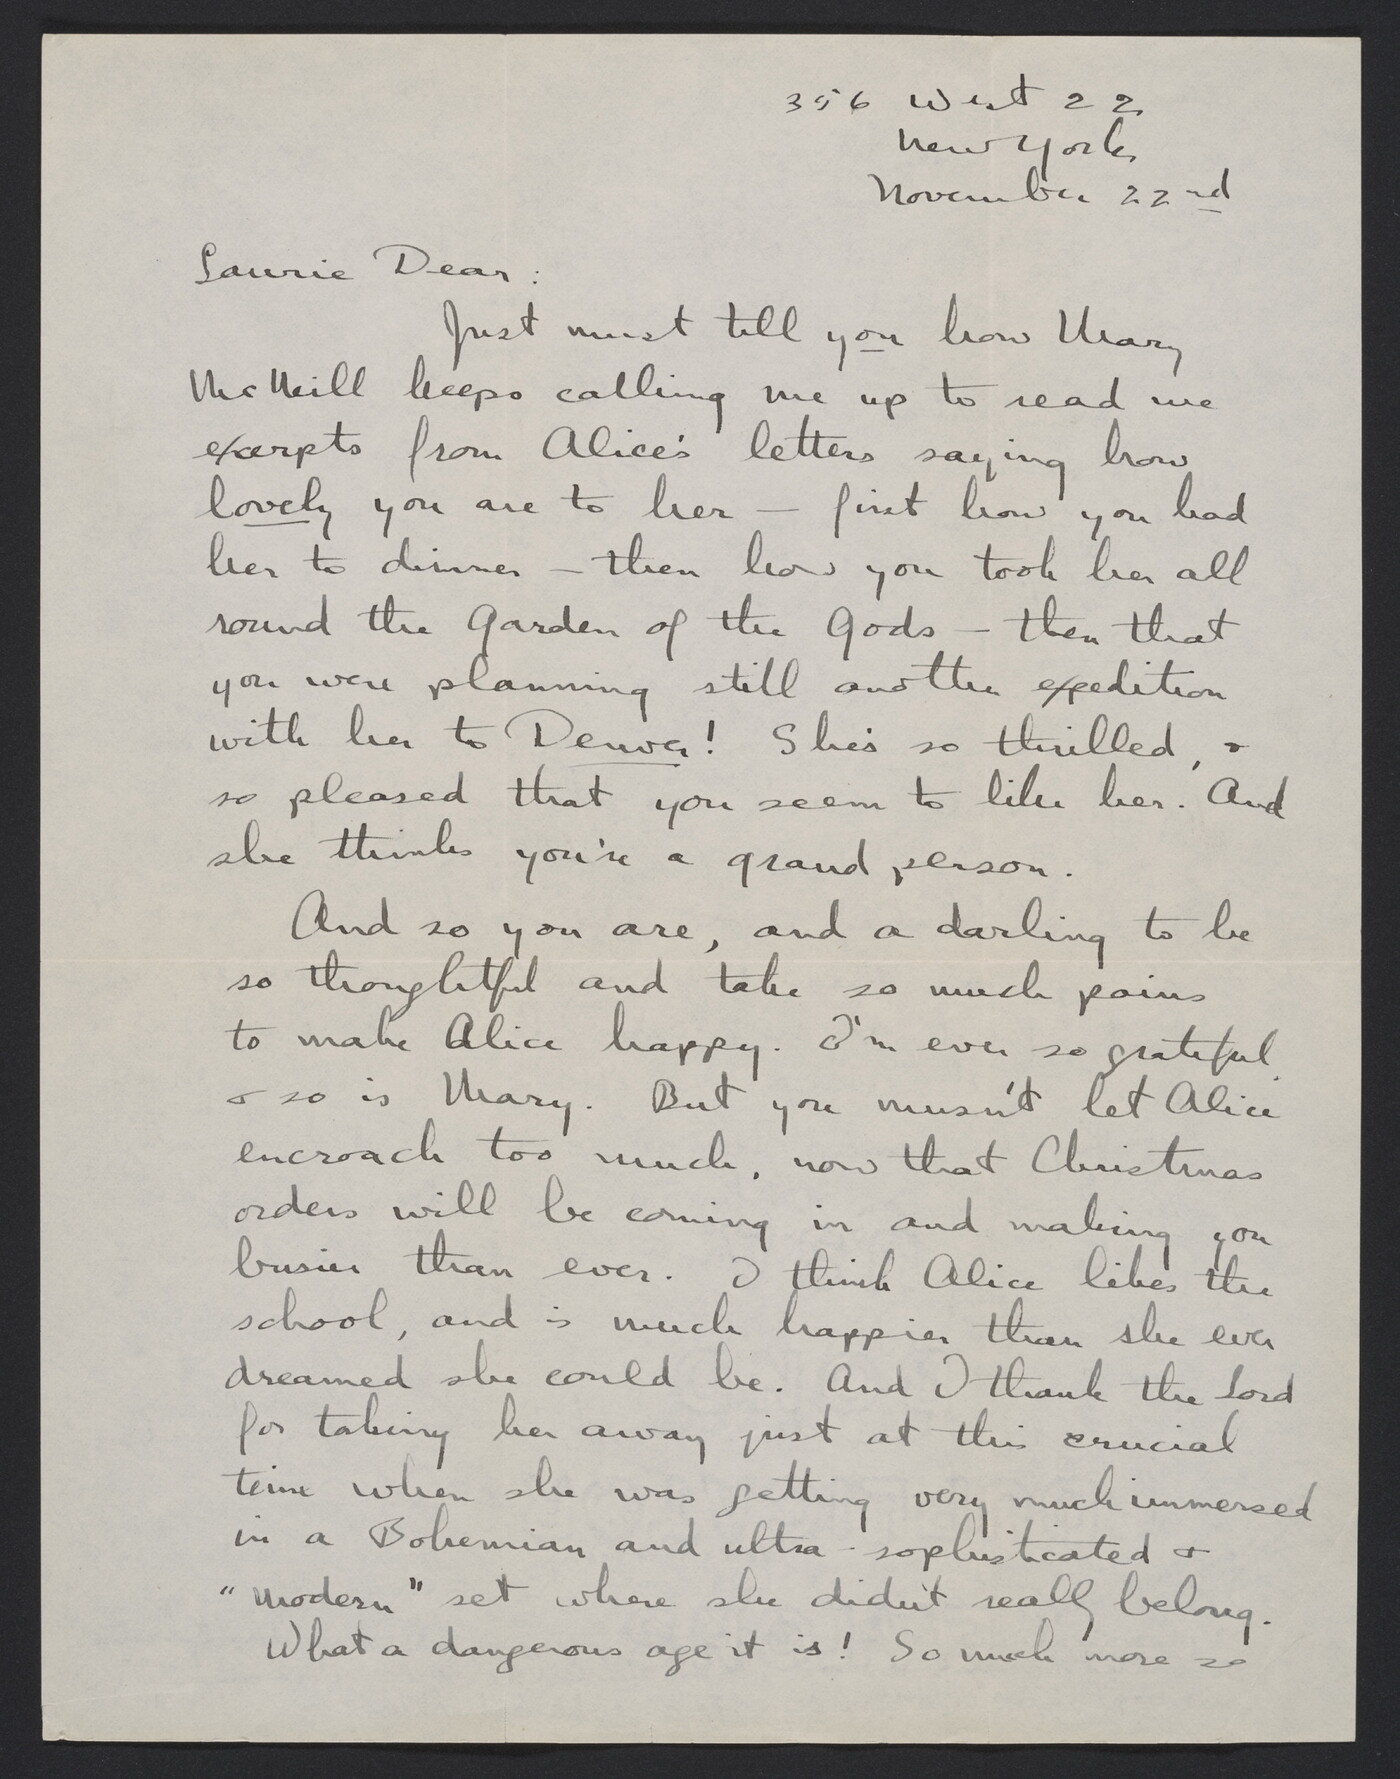 356 West 22
New York
November 22nd
Laurie Dear:
Just must tell you how Mary
McNeill keeps calling me up to read me
exerpts from Alice's letters saying how
lovely you are to her — first how you had
her to dinner — then how you took her all
round the Garden of the Gods — then that
you were planning still another expedition
with her to Denver! She's so thrilled, &
so pleased that you seem to like her. And
she thinks you're a grand person.
And so you are, and a darling to be
so thoughtful and take so much pains
to make Alice happy. I'm ever so grateful
& so is Mary. But you musn't let Alice
encroach too much, now that Christmas
orders will be coming in and making you
busier than ever. I think Alice likes the
school, and is much happier than she ever
dreamed she could be. And I thank the Lord
for taking her away just at this crucial
time when she was getting very much immersed
in a Bohemian and ultra-sophisticated &
"modern" set where she didn't really belong.
What a dangerous age it is! So much more so